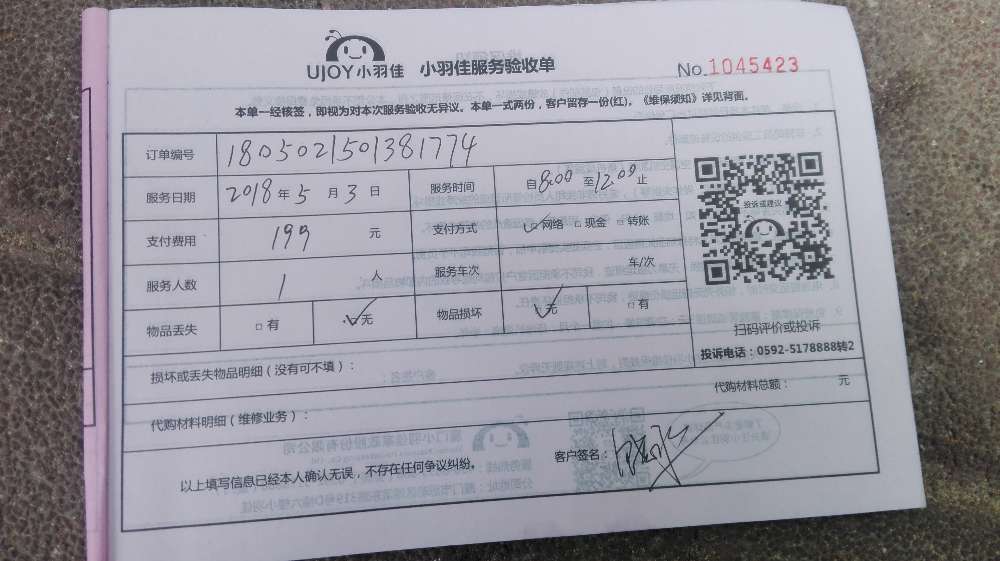 UJOY小羽佳 小羽佳服务验收单 No.1045423
本单一经核签，即视为对本次服务验收无异议。本单一式两份，客户留存一份(红)。《维保须知》详见背面。
订单编号 1805021501381774
服务日期 2018年5月3日 服务时间 自8:00至12:00止
支付费用 199元 支付方式 ☑网络 □现金 □转账
服务人数 1人 服务车次 车/次
物品丢失 □有 ☑无 物品损坏 ☑无 □有
投诉或建议
扫码评价或投诉
投诉电话：0592-5178888转2
损坏或丢失物品明细（没有可不填）：
代购材料明细（维修业务）： 代购材料总额： 元
以上填写信息已经本人确认无误，不存在任何争议纠纷。 客户签名：